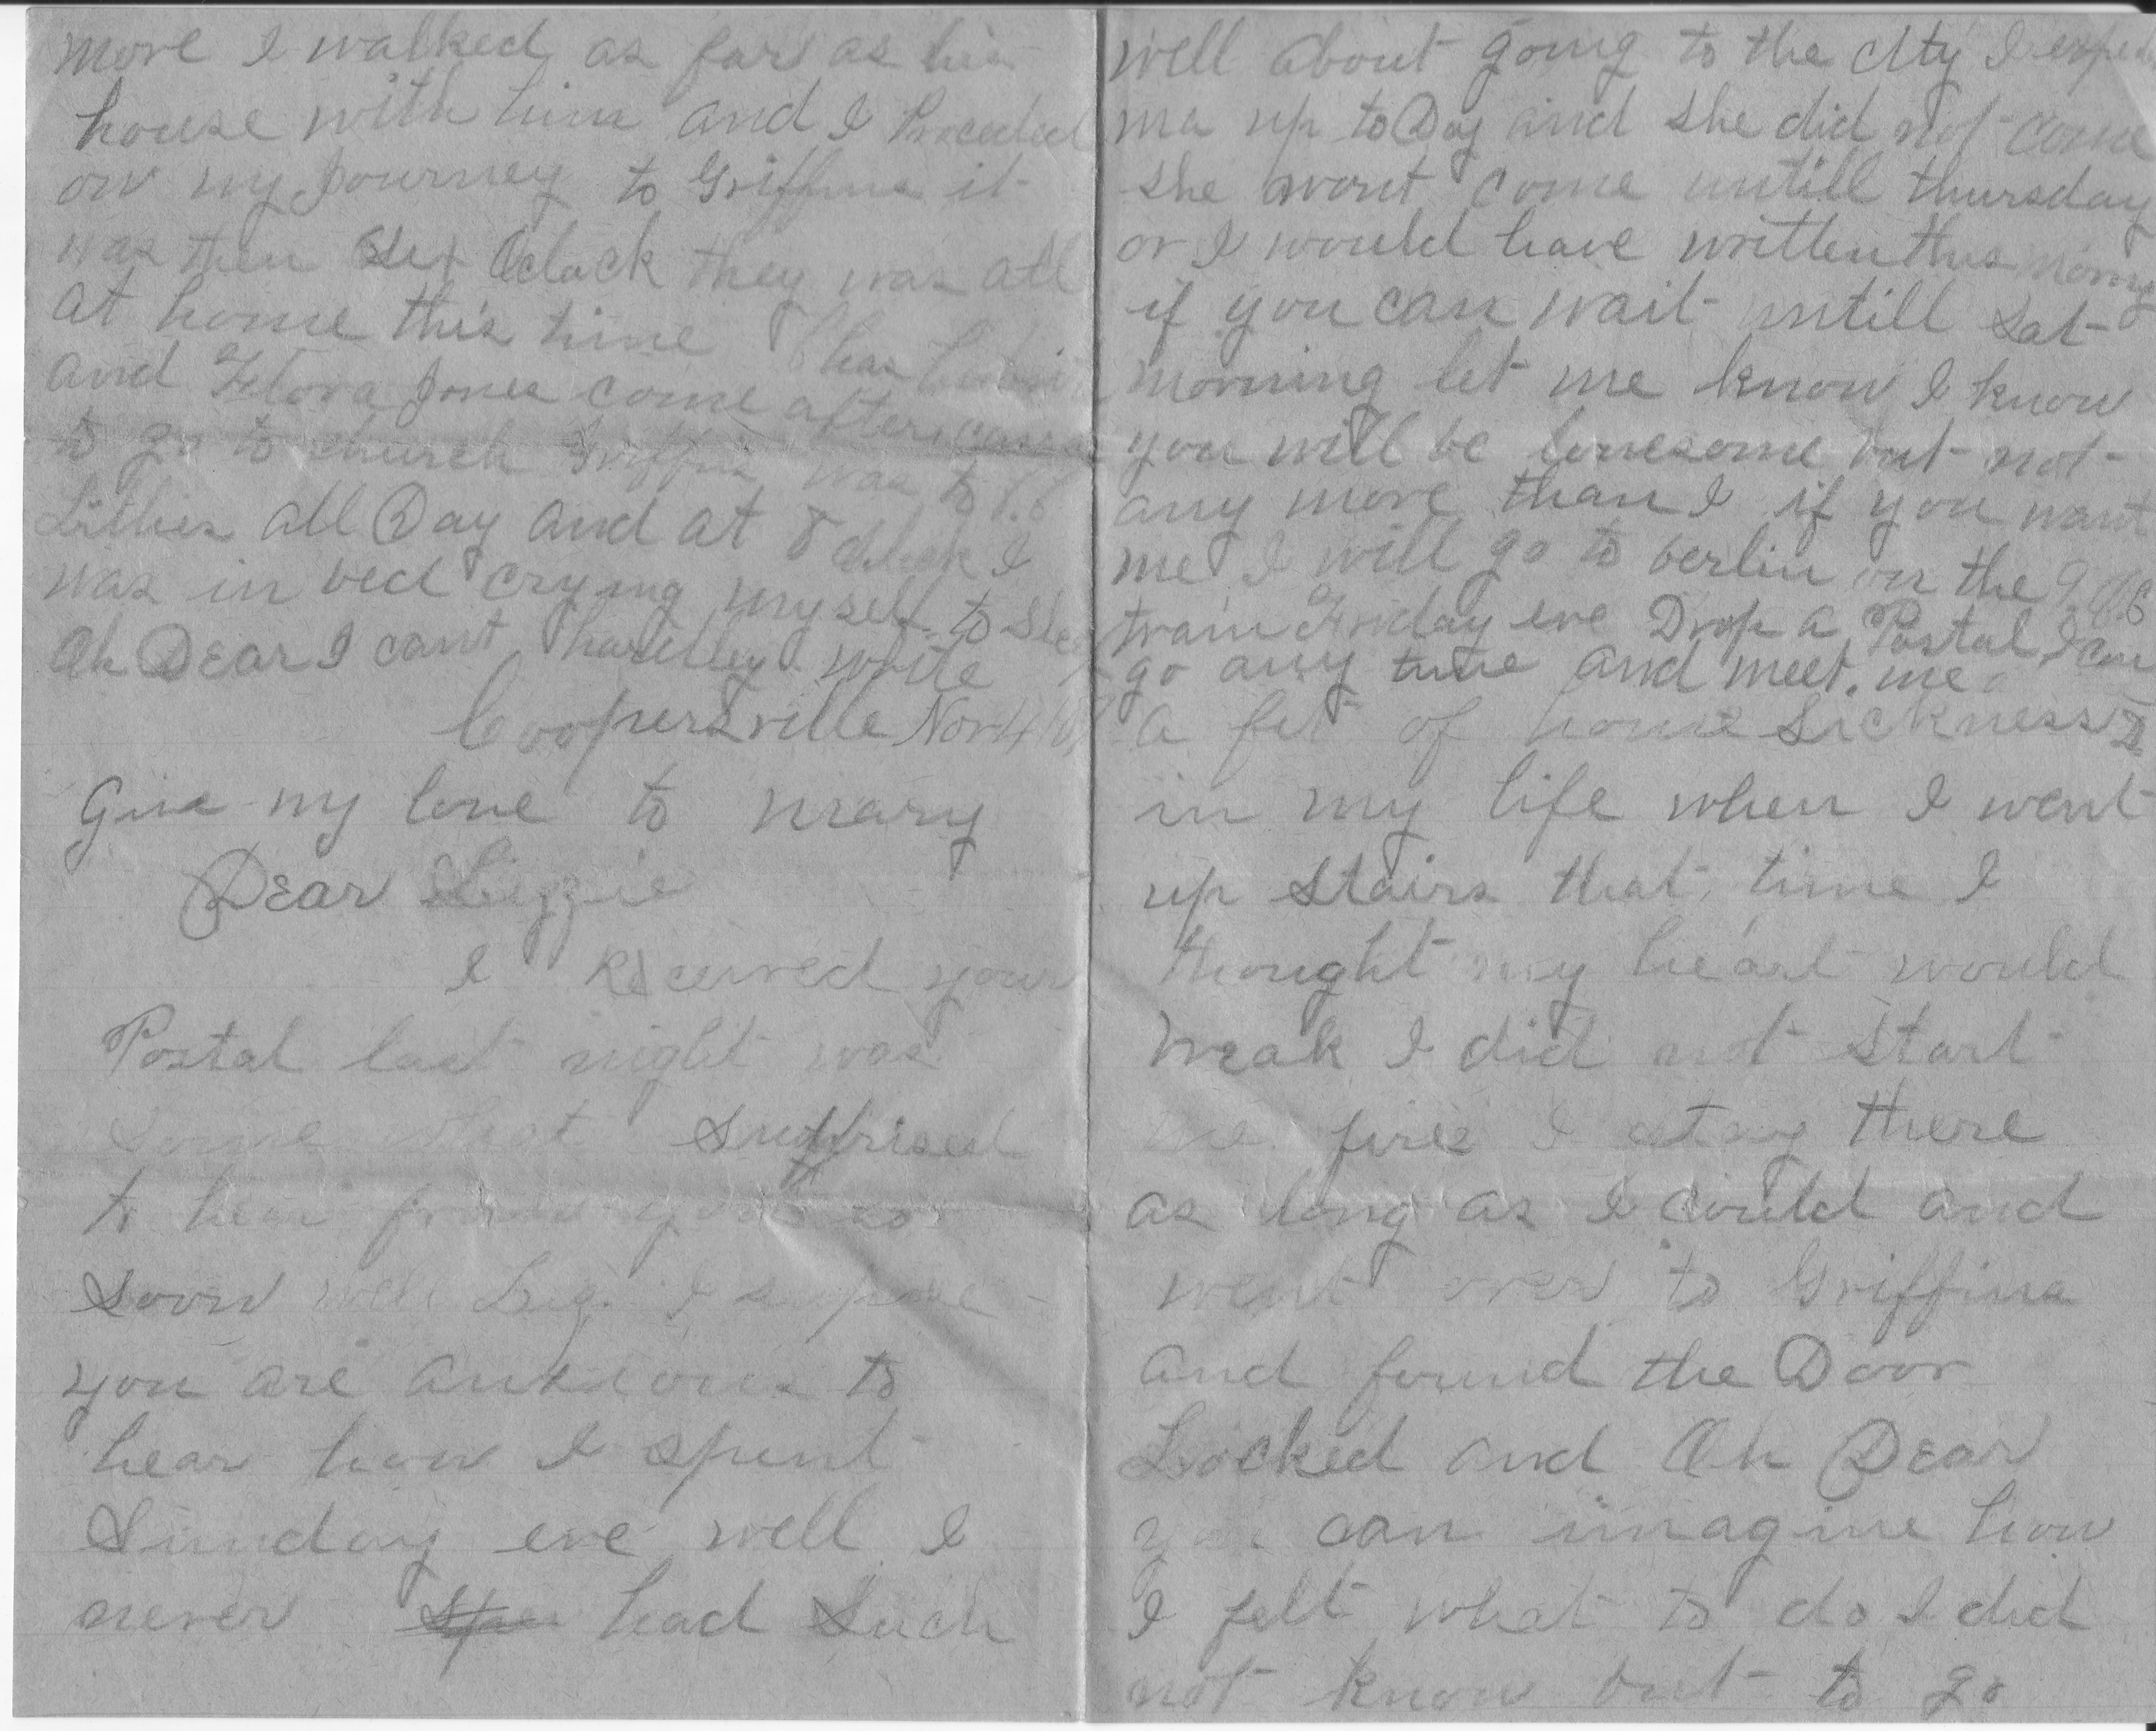 more I walked as far as his
house with him and I Proceeded
on my Journey to Griffins it
was then Six Oclock they was all
at home this time Chas
and Flora Jones come after
to go to church Griffins was to
all Day and at 8 oclock I
was in bed crying myself to
Oh Dear I cant hardley write
Coopersville Nov 4
Give my love to mary
Dear Lizzie
I Received your
Postal last night was
Some what Suprised
to hear from you so
Soon well Liz. I supose
you are anxious to
hear how I spent
Sunday eve well I
never had Such
well about going to the city I
ma up to Day and she did not come
she wont come untill thursday
or I would have written this morning
if you can wait untill Sat-
morning let me know I know
you will be lonesome but not
any more than I if you want
me I will go to berlin on the
train Friday eve Drop a Postal I can
go any time and meet me
a fit of home Sickness
in my life when I went
up stairs that time I
thought my heart would
break I did not start
fires I stay there
as long as I could and
went over to Griffins
and found the Door
Locked and Oh Dear
you can imagine how
I felt what to do I did
not know but to go